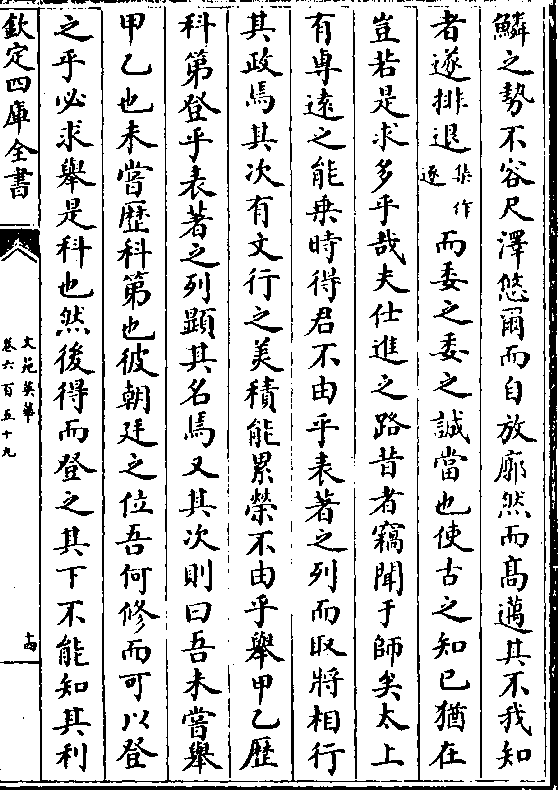 鱗之勢不容尺澤悠爾而自放廓然而髙邁其不我知
者遂排退集作遂而委之委之誠當也使古之知已猶在
豈若是求多乎哉夫仕進之路昔者竊聞于師矣太上
有専逺之能乗時得君不由乎表著之列而取將相行
其政焉其次有文行之美積能累榮不由乎舉甲乙歴
科第登乎表著之列顯其名焉又其次則曰吾未嘗舉
甲乙也未嘗歴科第也彼朝廷之位吾何修而可以登
之乎必求舉是科也然後得而登之其下不能知其利
欽定四庫全書
文苑英華
卷六百五十九
十四